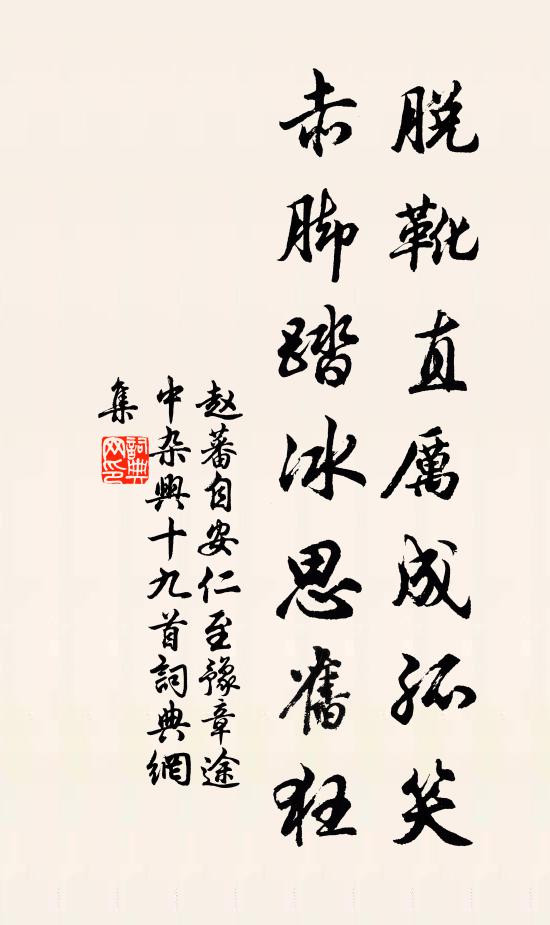 脱靴直厲成孤笑
赤脚踏冰思舊狂
赵蕃自安仁至豫章途
中杂興十九首詞典網
集
詞典
网印